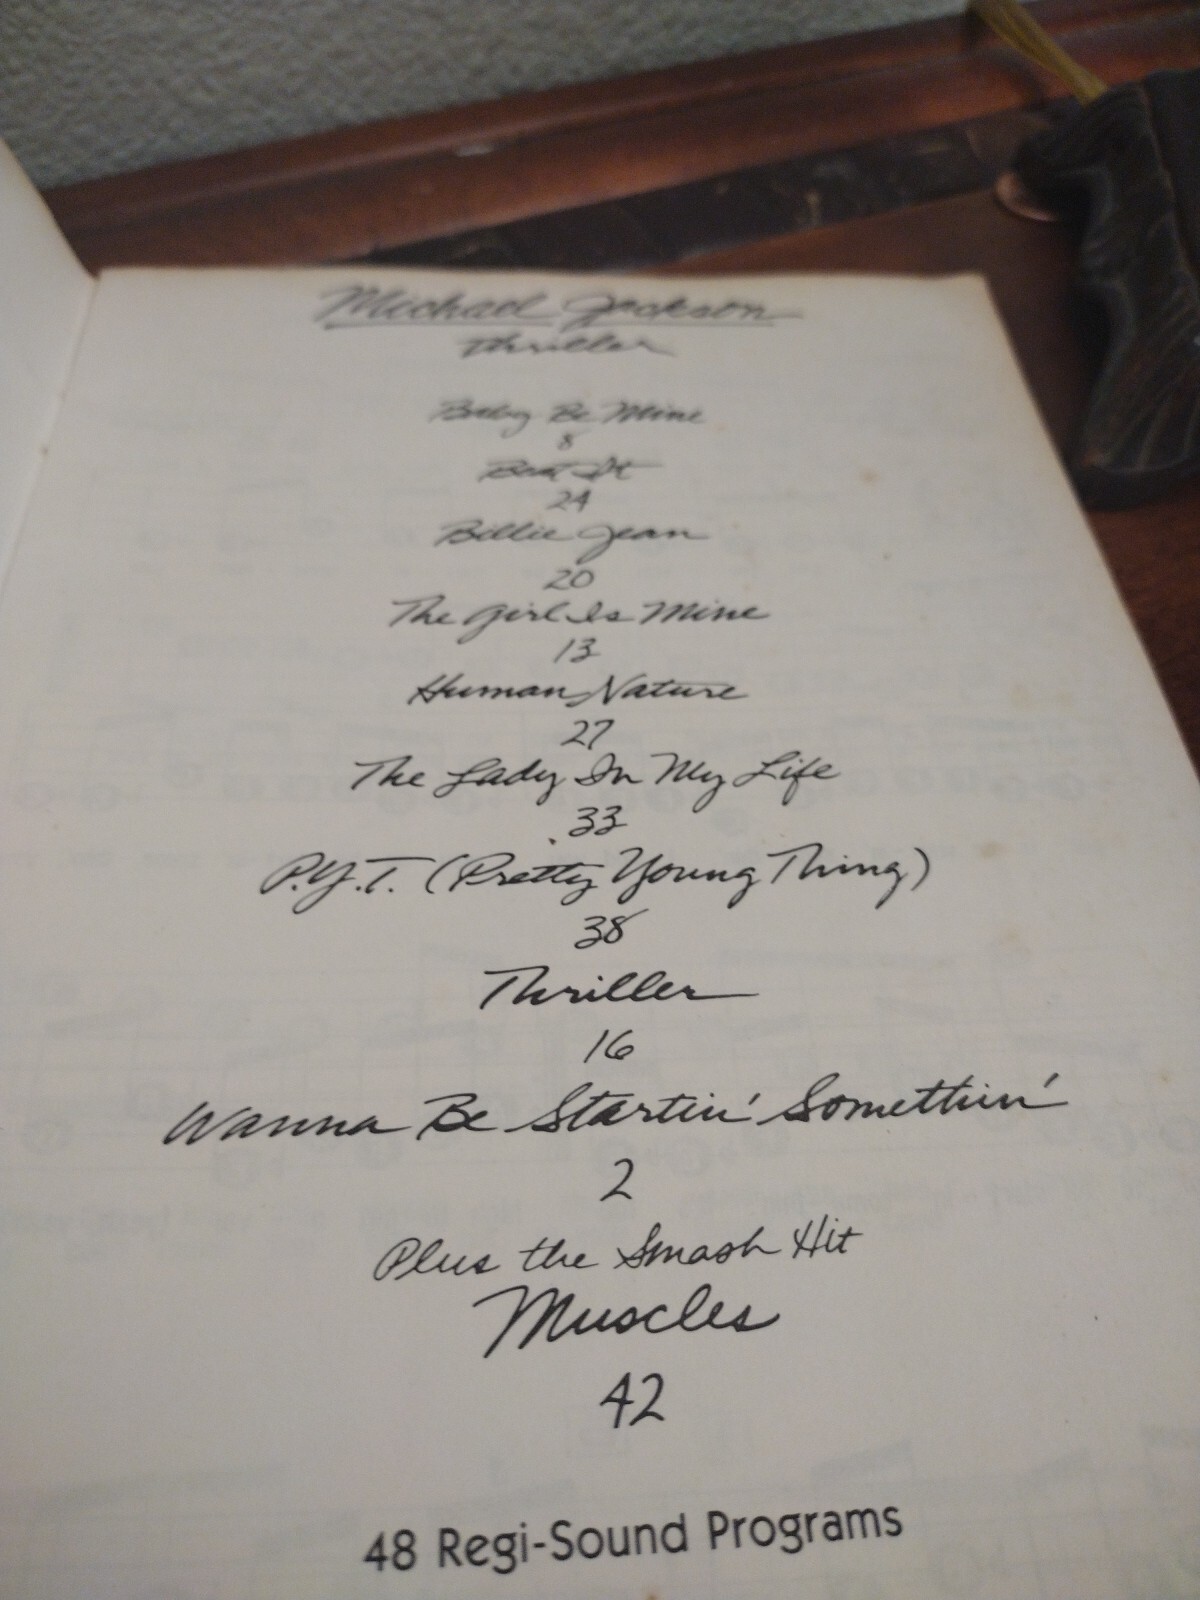 Michael Jackson
Thriller
Baby Be Mine
8
Beat It
24
Billie Jean
20
The Girl Is Mine
13
Human Nature
27
The Lady In My Life
33
P.Y.T. (Pretty Young Thing)
38
Thriller
16
Wanna Be Startin' Somethin'
2
Plus the Smash Hit
Muscles
42
48 Regi-Sound Programs